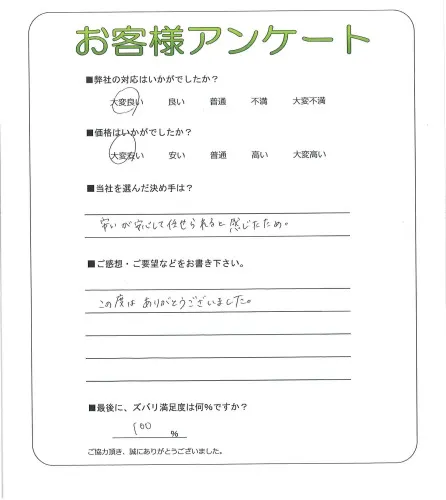 お客様アンケート
■弊社の対応はいかがでしたか?
大変良い 良い 普通 不満 大変不満
■価格はいかがでしたか?
大変安い 安い 普通 高い 大変高い
■当社を選んだ決め手は?
安いが安心して任せられると感じたため。
■ご感想・ご要望などをお書き下さい。
この度はありがとうございました。
■最後に、ズバリ満足度は何%ですか?
100 %
ご協力頂き、誠にありがとうございました。